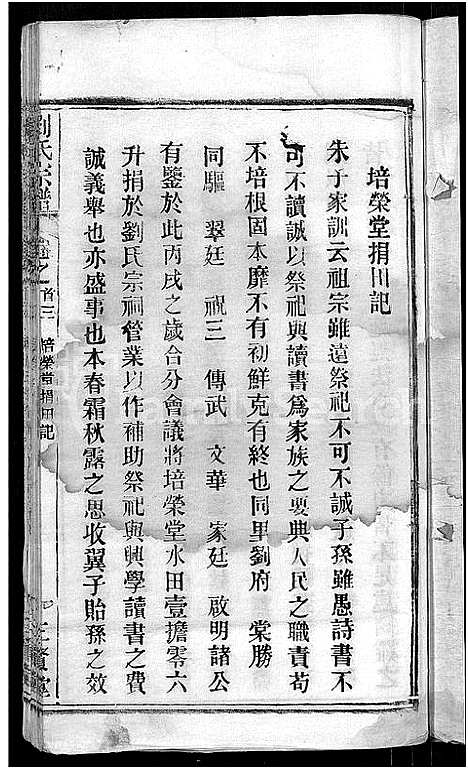 培榮堂捐田記
朱子家訓云祖宗雖遠祭祀不可不誠子孫雖愚詩書不
可不讀誠以祭祀與讀書為家族之要典人民之職責苟
不培根固本靡不有初鮮克有終也同里劉府 棠勝
同驅 翠廷 祝三 傳武 文華 家廷 啟明諸公
有鑒於此丙戌之歲合分會議將培榮堂水田壹擔零六
升捐於劉氏宗祠管業以作補助祭祀與興學讀書之費
誠義舉也亦盛事也本春霜秋露之思收翼子貽孫之效
劉氏宗譜 首三 培榮堂捐田記